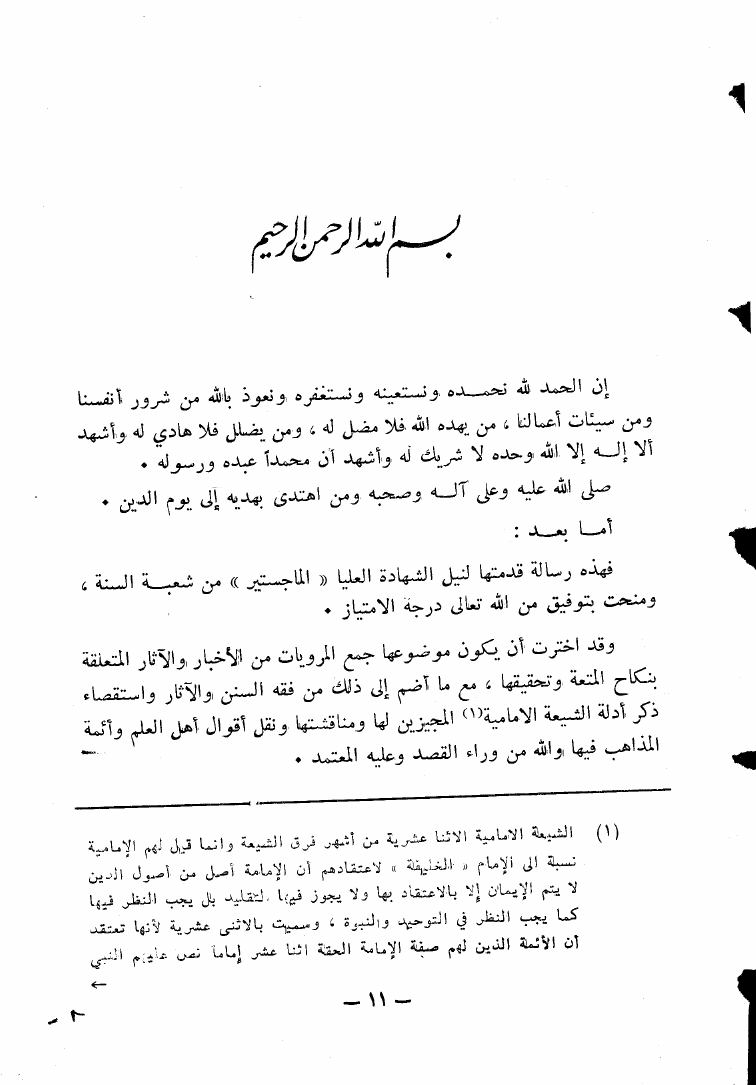 بسم الله الرحمن الرحيم
إن الحمد لله نحمـــده ونستعينه ونستغفره ونعوذ بالله من شرور أنفسنا
ومن سيئات أعمالنا ، من يهده الله فلا مضل له ، ومن يضلل فلا هادي له وأشهد
ألا إلـــه إلا الله وحده لا شريك له وأشهد أن محمداً عبده ورسوله .
صلى الله عليه وعلى آلـــه وصحبه ومن اهتدى بهديه إلى يوم الدين .
أمـــا بعـــد :
فهذه رسالة قدمتها لنيل الشهادة العليا « الماجستير » من شعبـــة السنة ،
ومنحت بتوفيق من الله تعالى درجة الامتياز .
وقد اخترت أن يكون موضوعها جمع المرويات من الأخبار والآثار المتعلقة
بنكاح المتعة وتحقيقها ، مع ما أضم إلى ذلك من فقه السنن والآثار واستقصاء
ذكر أدلة الشيعة الامامية(١) المجيزين لها ومناقشتها ونقل أقوال أهل العلم وأئمة
المذاهب فيها والله من وراء القصد وعليه المعتمد .
(١) الشيعة الامامية الاثنا عشرية من أشهر فرق الشيعة وانما قيل لهم الإمامية
نسبة الى الإمام « الخليفة » لاعتقادهم أن الإمامة أصل من أصول الدين
لا يتم الإيمان إلا بالاعتقاد بها ولا يجوز فيها التقليد بل يجب النظر فيها
كما يجب النظر في التوحيد والنبوة ، وسميت بالاثنى عشرية لأنها تعتقد
أن الأئمة الذين لهم صفة الإمامة الحقة اثنا عشر إماماً نص عليهم النبي
←
– ١١ –